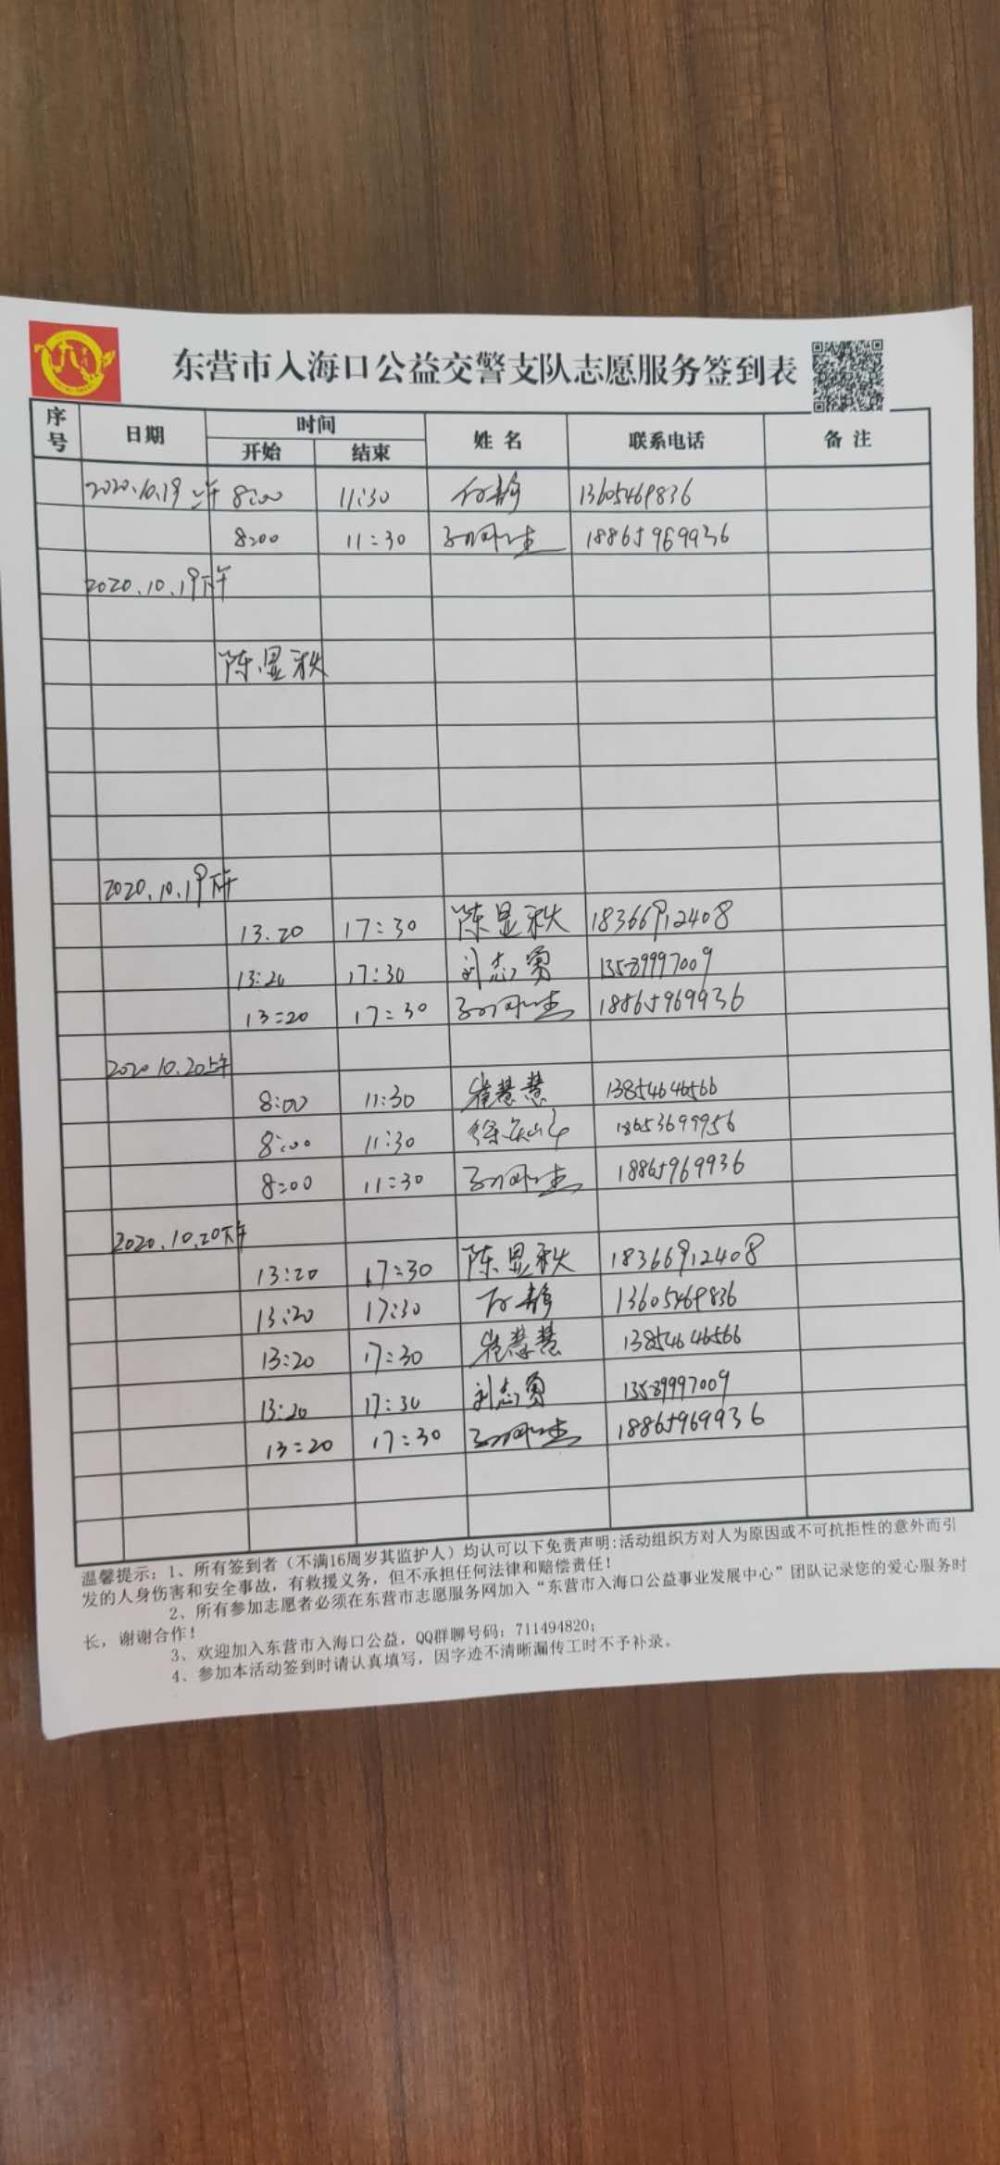 东营市入海口公益交警支队志愿服务签到表
序号 日期 时间 姓名 联系电话 备注
开始 结束
2020.10.19 上午 8:00 11:30 静 13605469836
8:00 11:30 18865969936
2020.10.19下午
陈显秋
2020.10.19下午
13.20 17:30 陈显秋 18366912408
13:20 17:30 刘志勇 13589997009
13:20 17:30 18865969936
2020.10.20上午
8:00 11:30 崔慧慧 13854646566
8:00 11:30 徐 18653699956
8:00 11:30 18865969936
2020.10.20下午
13:20 17:30 陈显秋 18366912408
13:20 17:30 静 13605469836
13:20 17:30 崔慧慧 13854646566
13:20 17:30 刘志勇 13589997009
13:20 17:30 18865969936
温馨提示：1、所有签到者（不满16周岁其监护人）均认可以下免责声明:活动组织方对人为原因或不可抗拒性的意外而引
发的人身伤害和安全事故，有救援义务，但不承担任何法律和赔偿责任！
2、所有参加志愿者必须在东营市志愿服务网加入“东营市入海口公益事业发展中心”团队记录您的爱心服务时
长，谢谢合作！
3、欢迎加入东营市入海口公益，QQ群聊号码：711494820；
4、参加本活动签到时请认真填写，因字迹不清晰漏传工时不予补录。